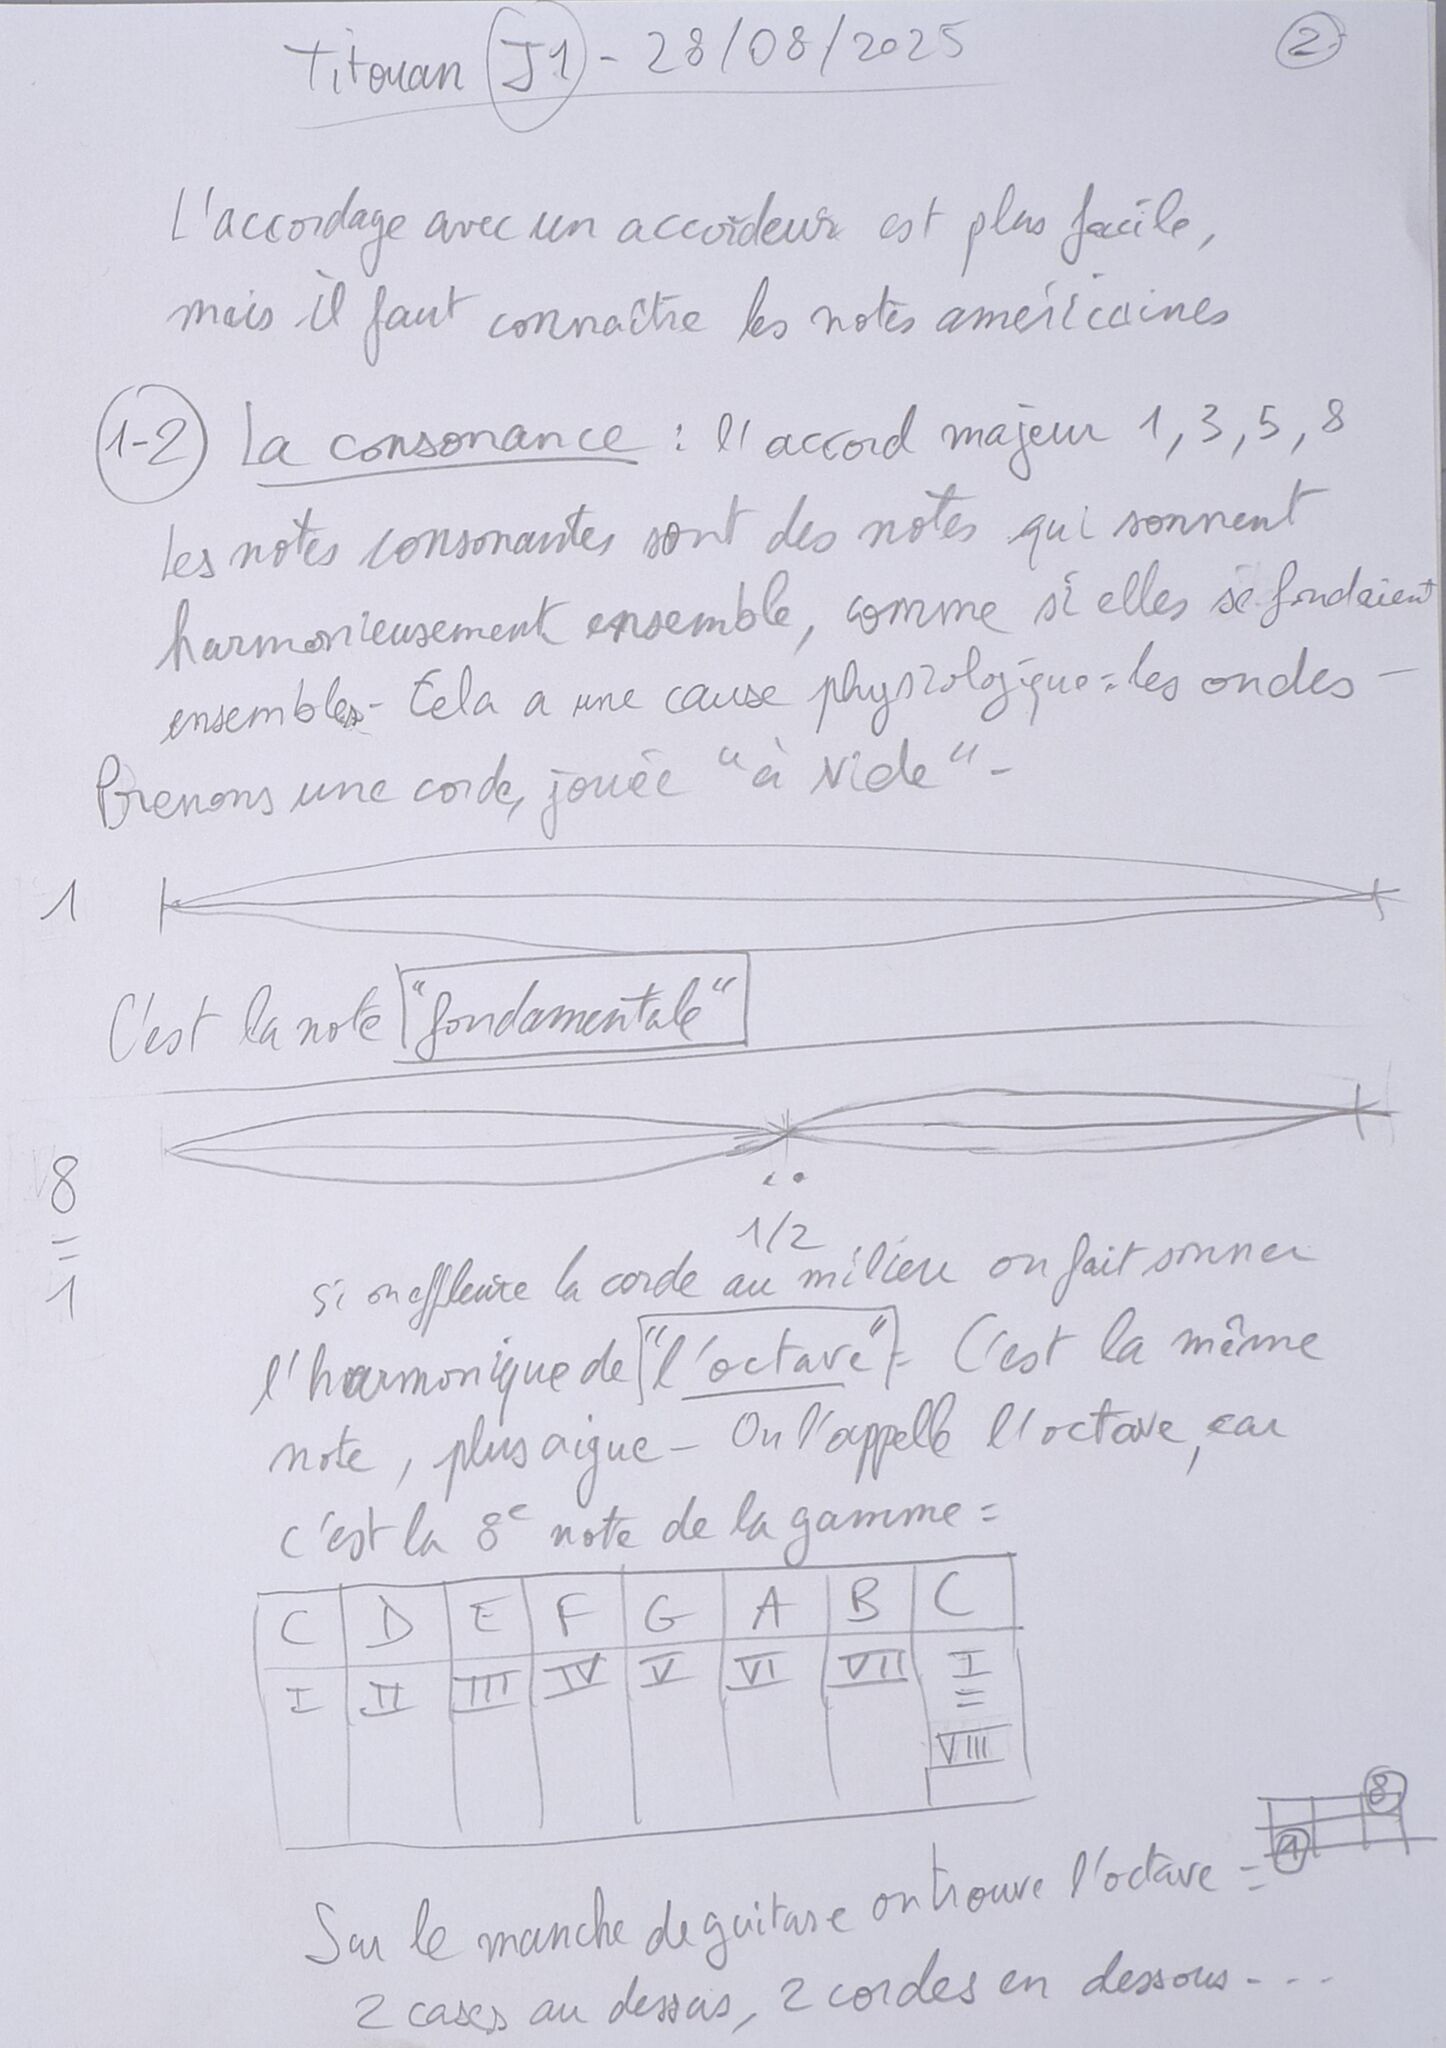 Titouan J1 - 28/08/2025
2
L'accordage avec un accordeur est plus facile,
mais il faut connaître les notes américaines
1-2 La consonance : l'accord majeur 1, 3, 5, 8
Les notes consonantes sont des notes qui sonnent
harmonieusement ensemble, comme si elles se fondaient
ensembles - Cela a une cause physiologique : les ondes -
Prenons une corde, jouée "à vide" -
1
C'est la note "fondamentale"
8
=
1
1/2
Si on effleure la corde au milieu on fait sonner
l'harmonique de "l'octave" - C'est la même
note, plus aigue - On l'appelle l'octave, car
c'est la 8e note de la gamme =
C D E F G A B C
I II III IV V VI VII I
=
VIII
8
1
Sur le manche de guitare on trouve l'octave =
2 cases au dessus, 2 cordes en dessous - - -